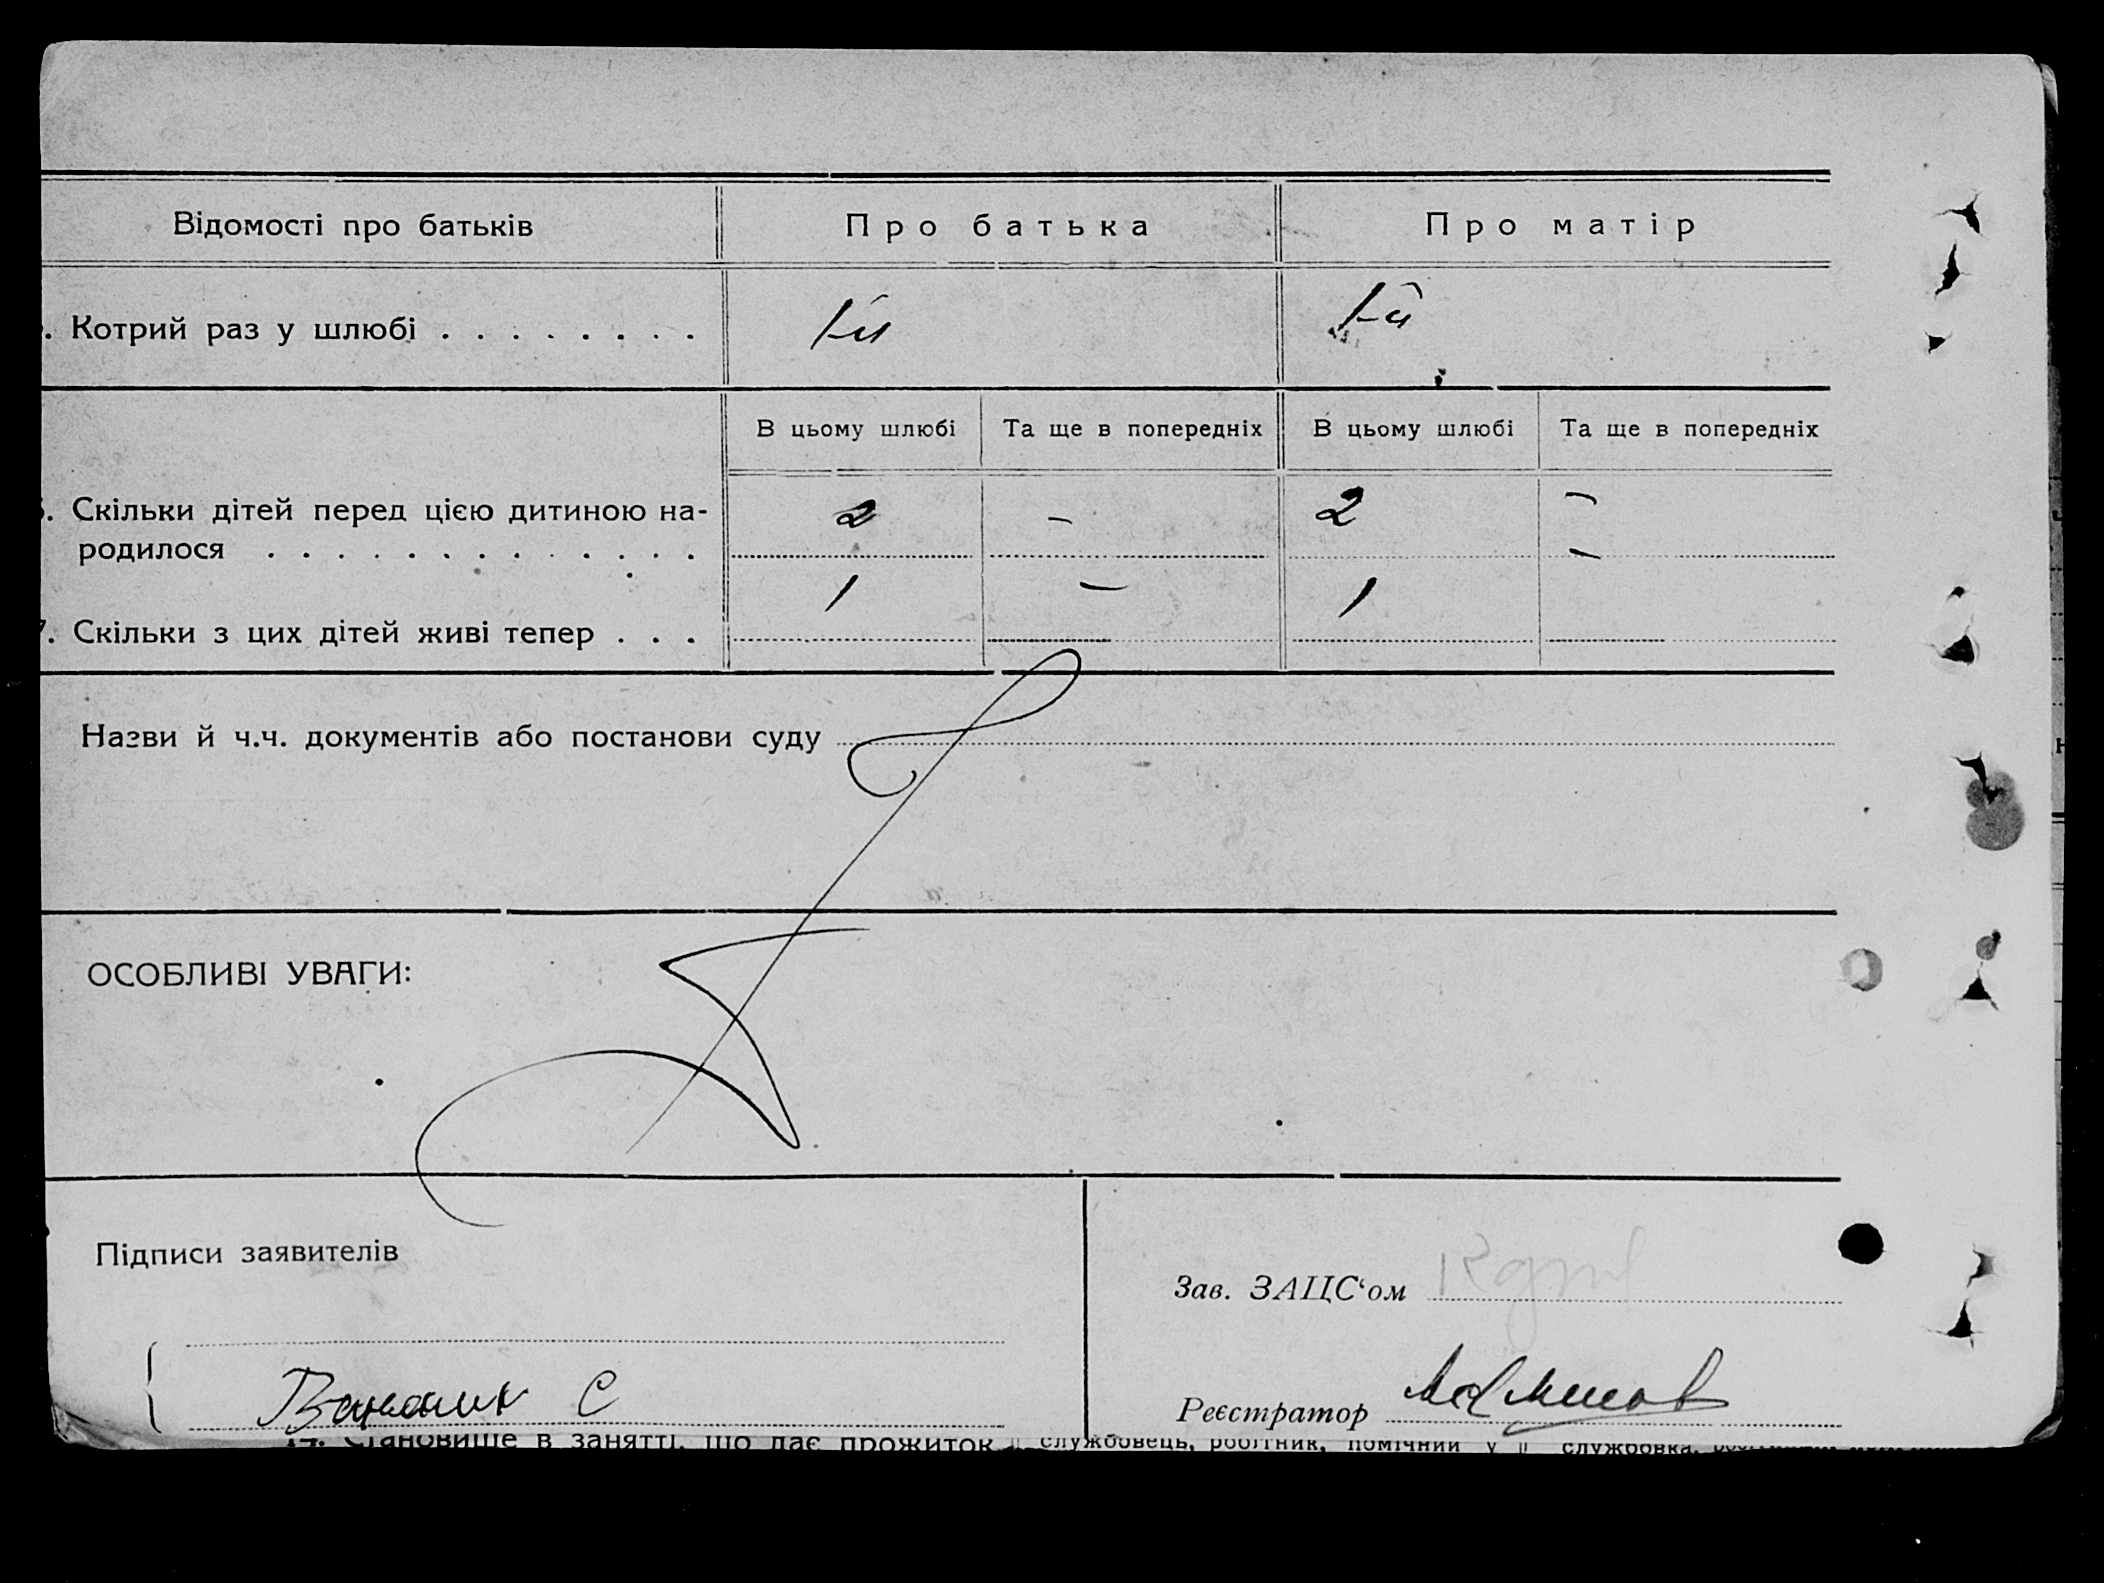 Відомості про батьків Про батька Про матір
. Котрий раз у шлюбі . . . . . . . . 1-й 1-й
В цьому шлюбі Та ще в попередніх В цьому шлюбі Та ще в попередніх
. Скільки дітей перед цією дитиною на- 2 – 2 –
родилося . . . . . . . . . . . . . –
1 – 1
7. Скільки з цих дітей живі тепер . . .
Назви й ч.ч. документів або постанови суду
ОСОБЛИВІ УВАГИ:
Підписи заявителів
Зав. ЗАЦС‘ом
С
Реєстратор
14. Становище в занятті, що дає прожиток службовець, робітник, помічний у службовка,